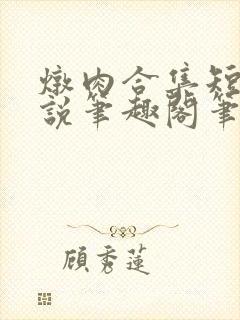 燉肉合集短
說筆趣閣筆
顧秀蓮